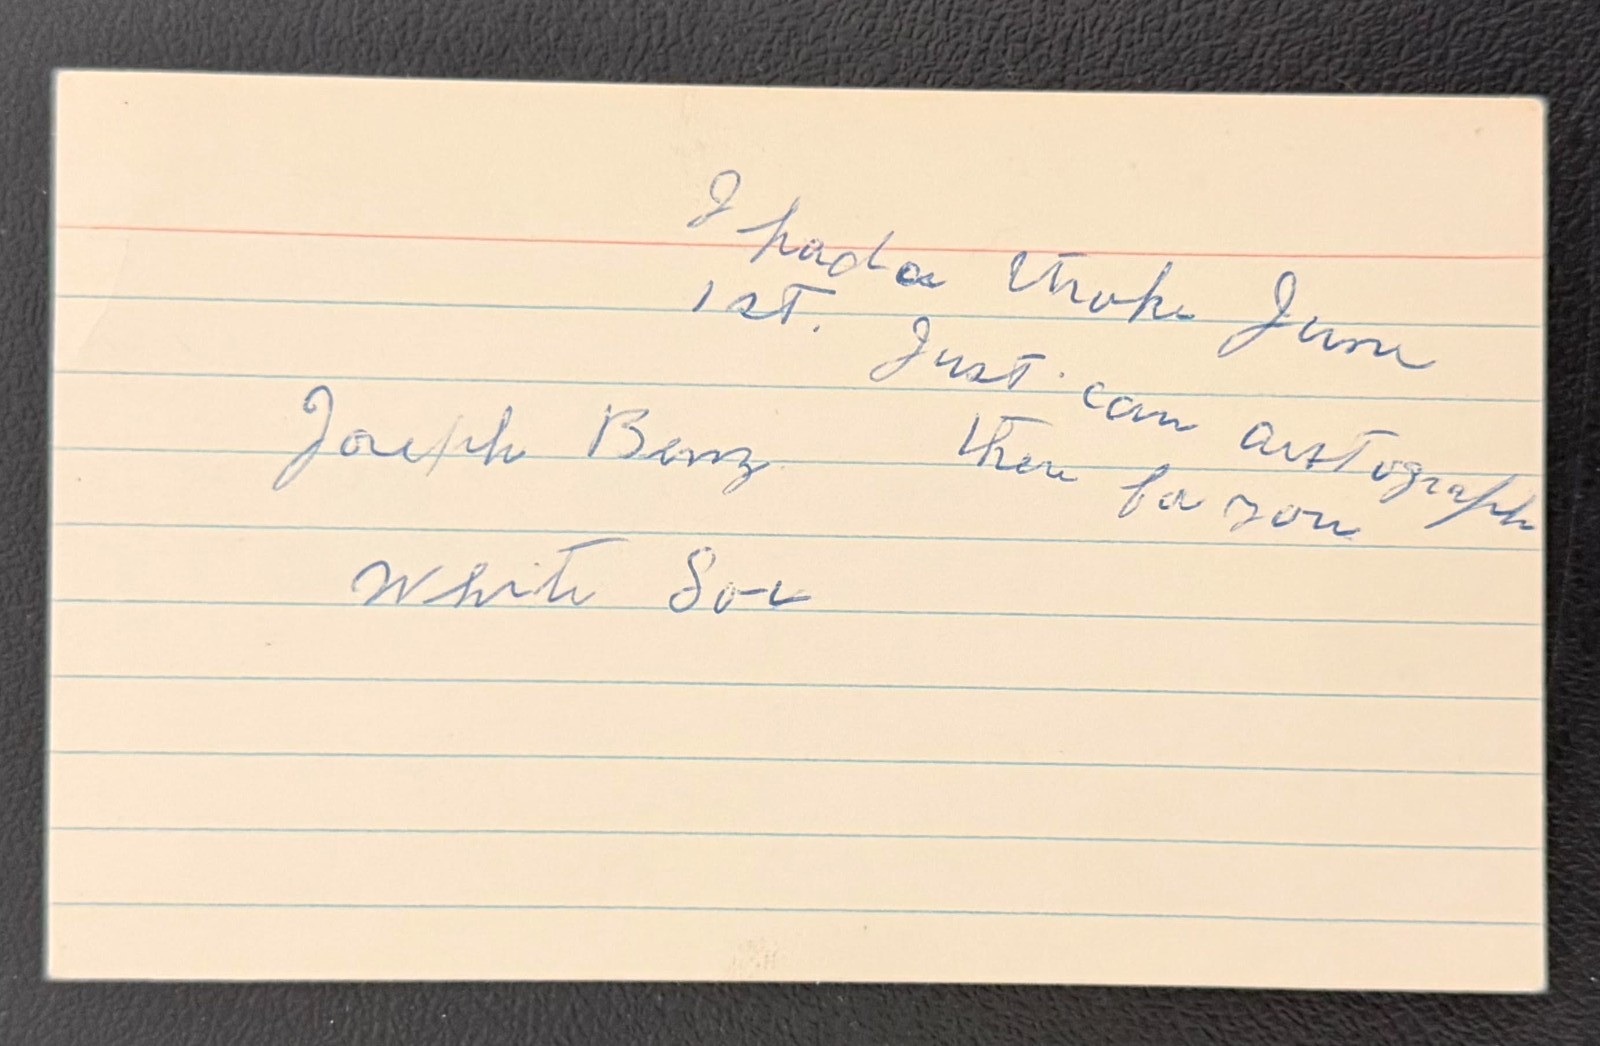 I had a stroke June
1st. Just can autograph
Joseph Benz
there for you
White Sox